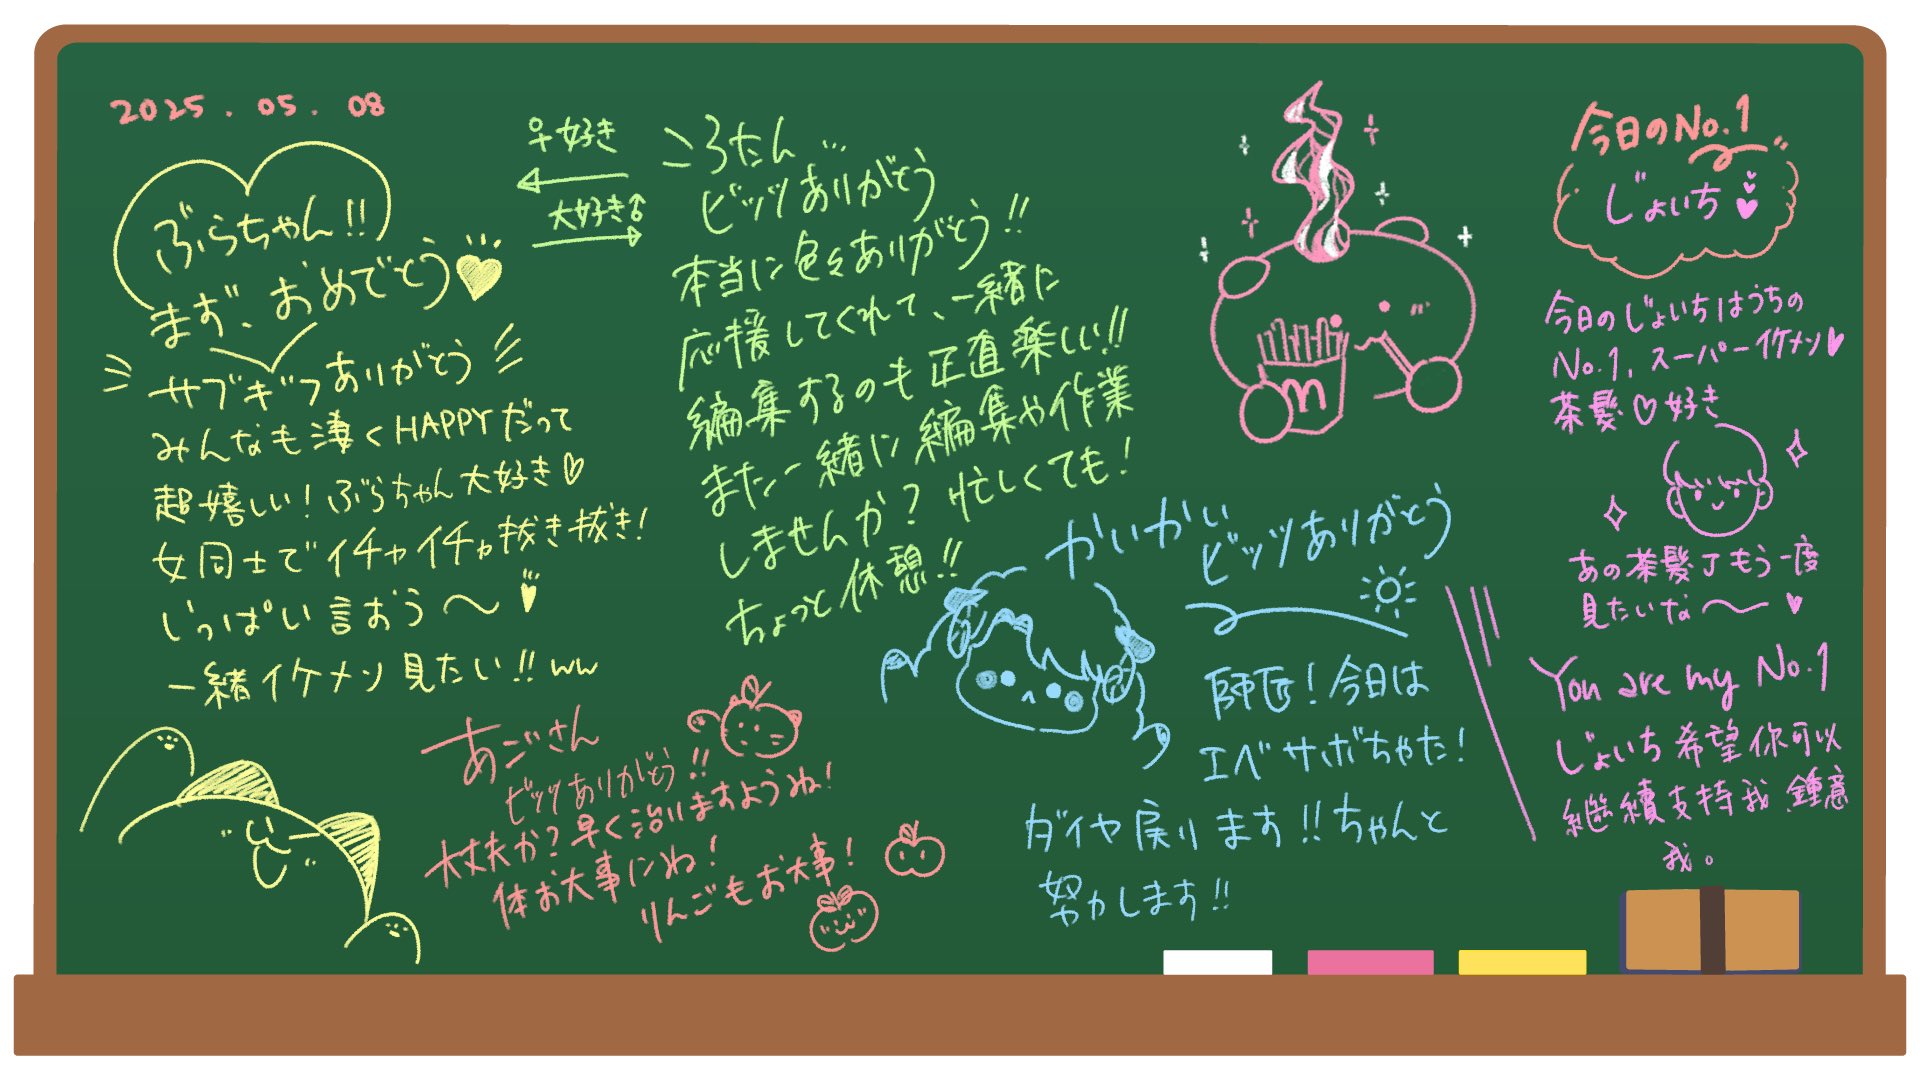 2025.05.08
ぶらちゃん!!
まず、おめでとう
サブギフありがとう
みんなも凄くHAPPYだって
超嬉しい！ぶらちゃん大好き♡
女同士でイチャイチャ抜き抜き！
いっぱい言おう〜
一緒イケメン見たい!!ww
♀好き
大好き♂
ころたん…
ビッツありがとう
本当に色々ありがとう!!
応援してくれて、一緒に
編集するのも正直楽しい!!
また一緒に編集や作業
しませんか？忙しくても！
ちょっと休憩!!
あごさん
ビッツありがとう!!
大丈夫か？早く治りますようね！
体お大事にね！
りんごもお大事！
かいかい
ビッツありがとう
師匠！今日は
エペサボちゃた！
ダイヤ戻ります!!ちゃんと
努力します!!
m
今日のNo.1
じょいち
今日のじょいちはうちの
No.1,スーパーイケメン♥
茶髪♡好き
あの茶髪Jもう一度
見たいな〜♥
You are my No.1
じょいち希望你可以
繼續支持我,鍾意
我。